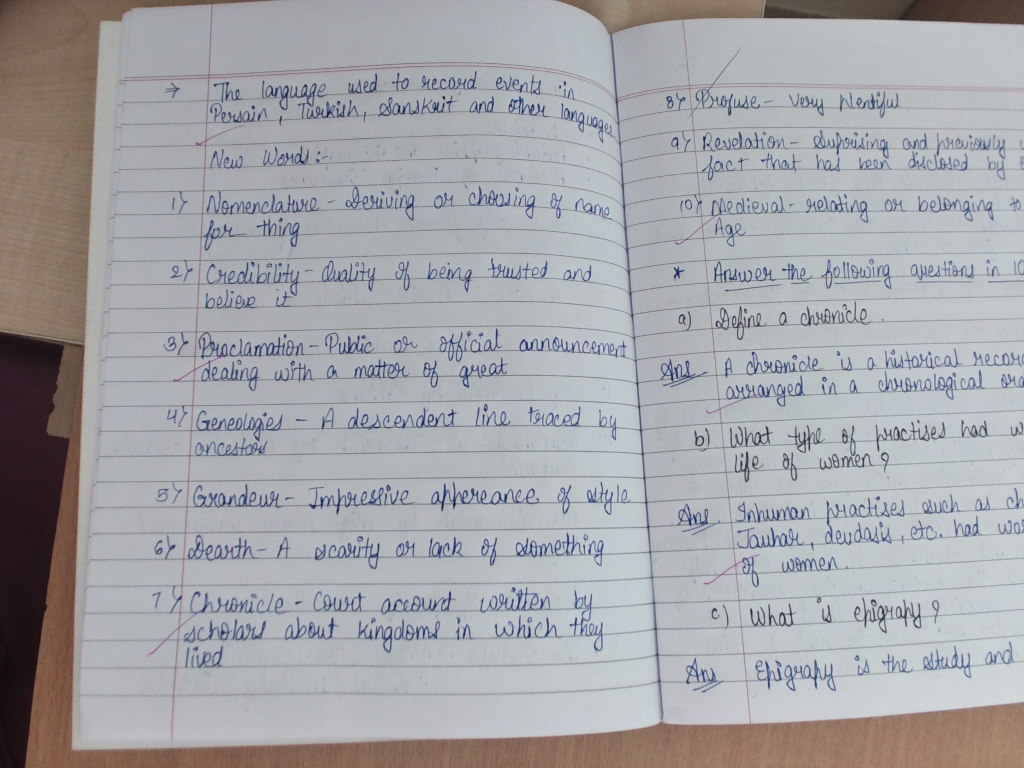 → The language used to record events in
Persain, Turkish, Sanskrit and other languages.
New Words:-
1) Nomenclature - Deriving or choosing of name
for thing
2) Credibility - Quality of being trusted and
believe it
3) Proclamation - Public or official announcement
dealing with a matter of great
4) Geneologies - A descendent line traced by
ancestors
5) Grandeur - Impressive apphereance of style
6) Dearth - A scarity or lack of something
7) Chronicle - Court account written by
scholars about kingdoms in which they
lived
8) Profuse - Very Plentiful
9) Revelation - Suprising and previously
fact that has been disclosed by
10) Medieval - relating or belonging to
Age
* Answer the following questions in 10
a) Define a chronicle.
Ans A chronicle is a historical recor
arranged in a chronological
b) What type of practises had
life of women?
Ans Inhuman practises such as
Jauhar, devdasis, etc. had
of women.
c) What is epigrapy?
Ans Epigrapy is the study and